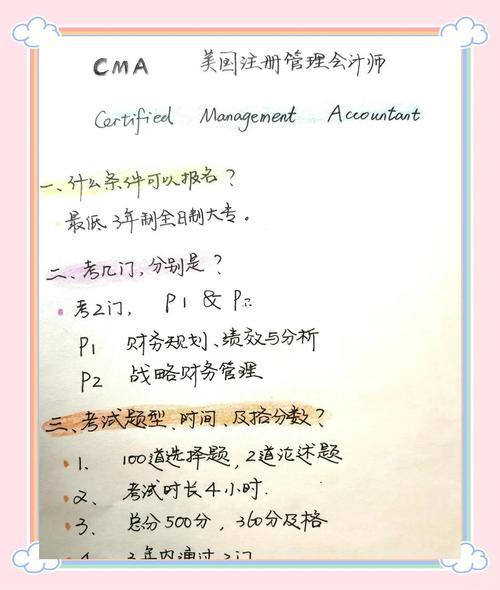 CMA 美国注册管理会计师
Certified Management Accountant
一、什么条件可以报名？
最低3年制全日制大专。
二、考几门,分别是？
考2门, P1 & P2
P1 财务规划、绩效与分析
P2 战略财务管理
三、考试题型、时间、及格分数？
1. 100道选择题,2道论述题
2、考试时长4小时.
3. 总分500分,360分及格
3年内通过2门